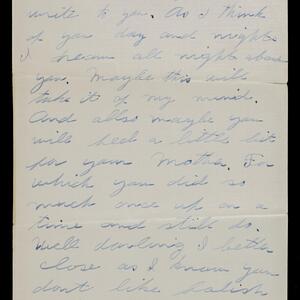 write to you. As I think
of you day and nights
I dream all night about
you. Maybe this will
take it of my mind.
And allso maybe you
will feel a little bit
for your Mother. For
which you did so
much once up on a
time and still do.
Well darling I better
close as I know you
dont like